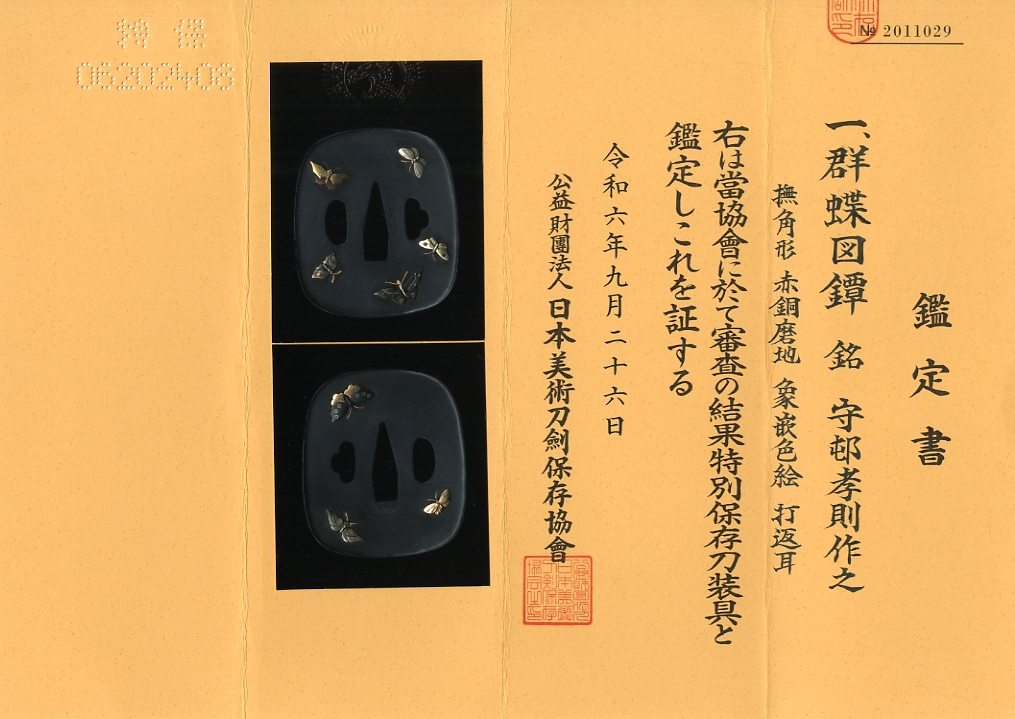 № 2011029
鑑定書
一、群蝶図鐔 銘 守邨孝則作之
撫角形 赤銅磨地 象嵌色絵 打返耳
右は當協會に於て審査の結果特別保存刀装具と
鑑定しこれを証する
令和六年九月二十六日
公益財團法人 日本美術刀劍保存協會
06202408